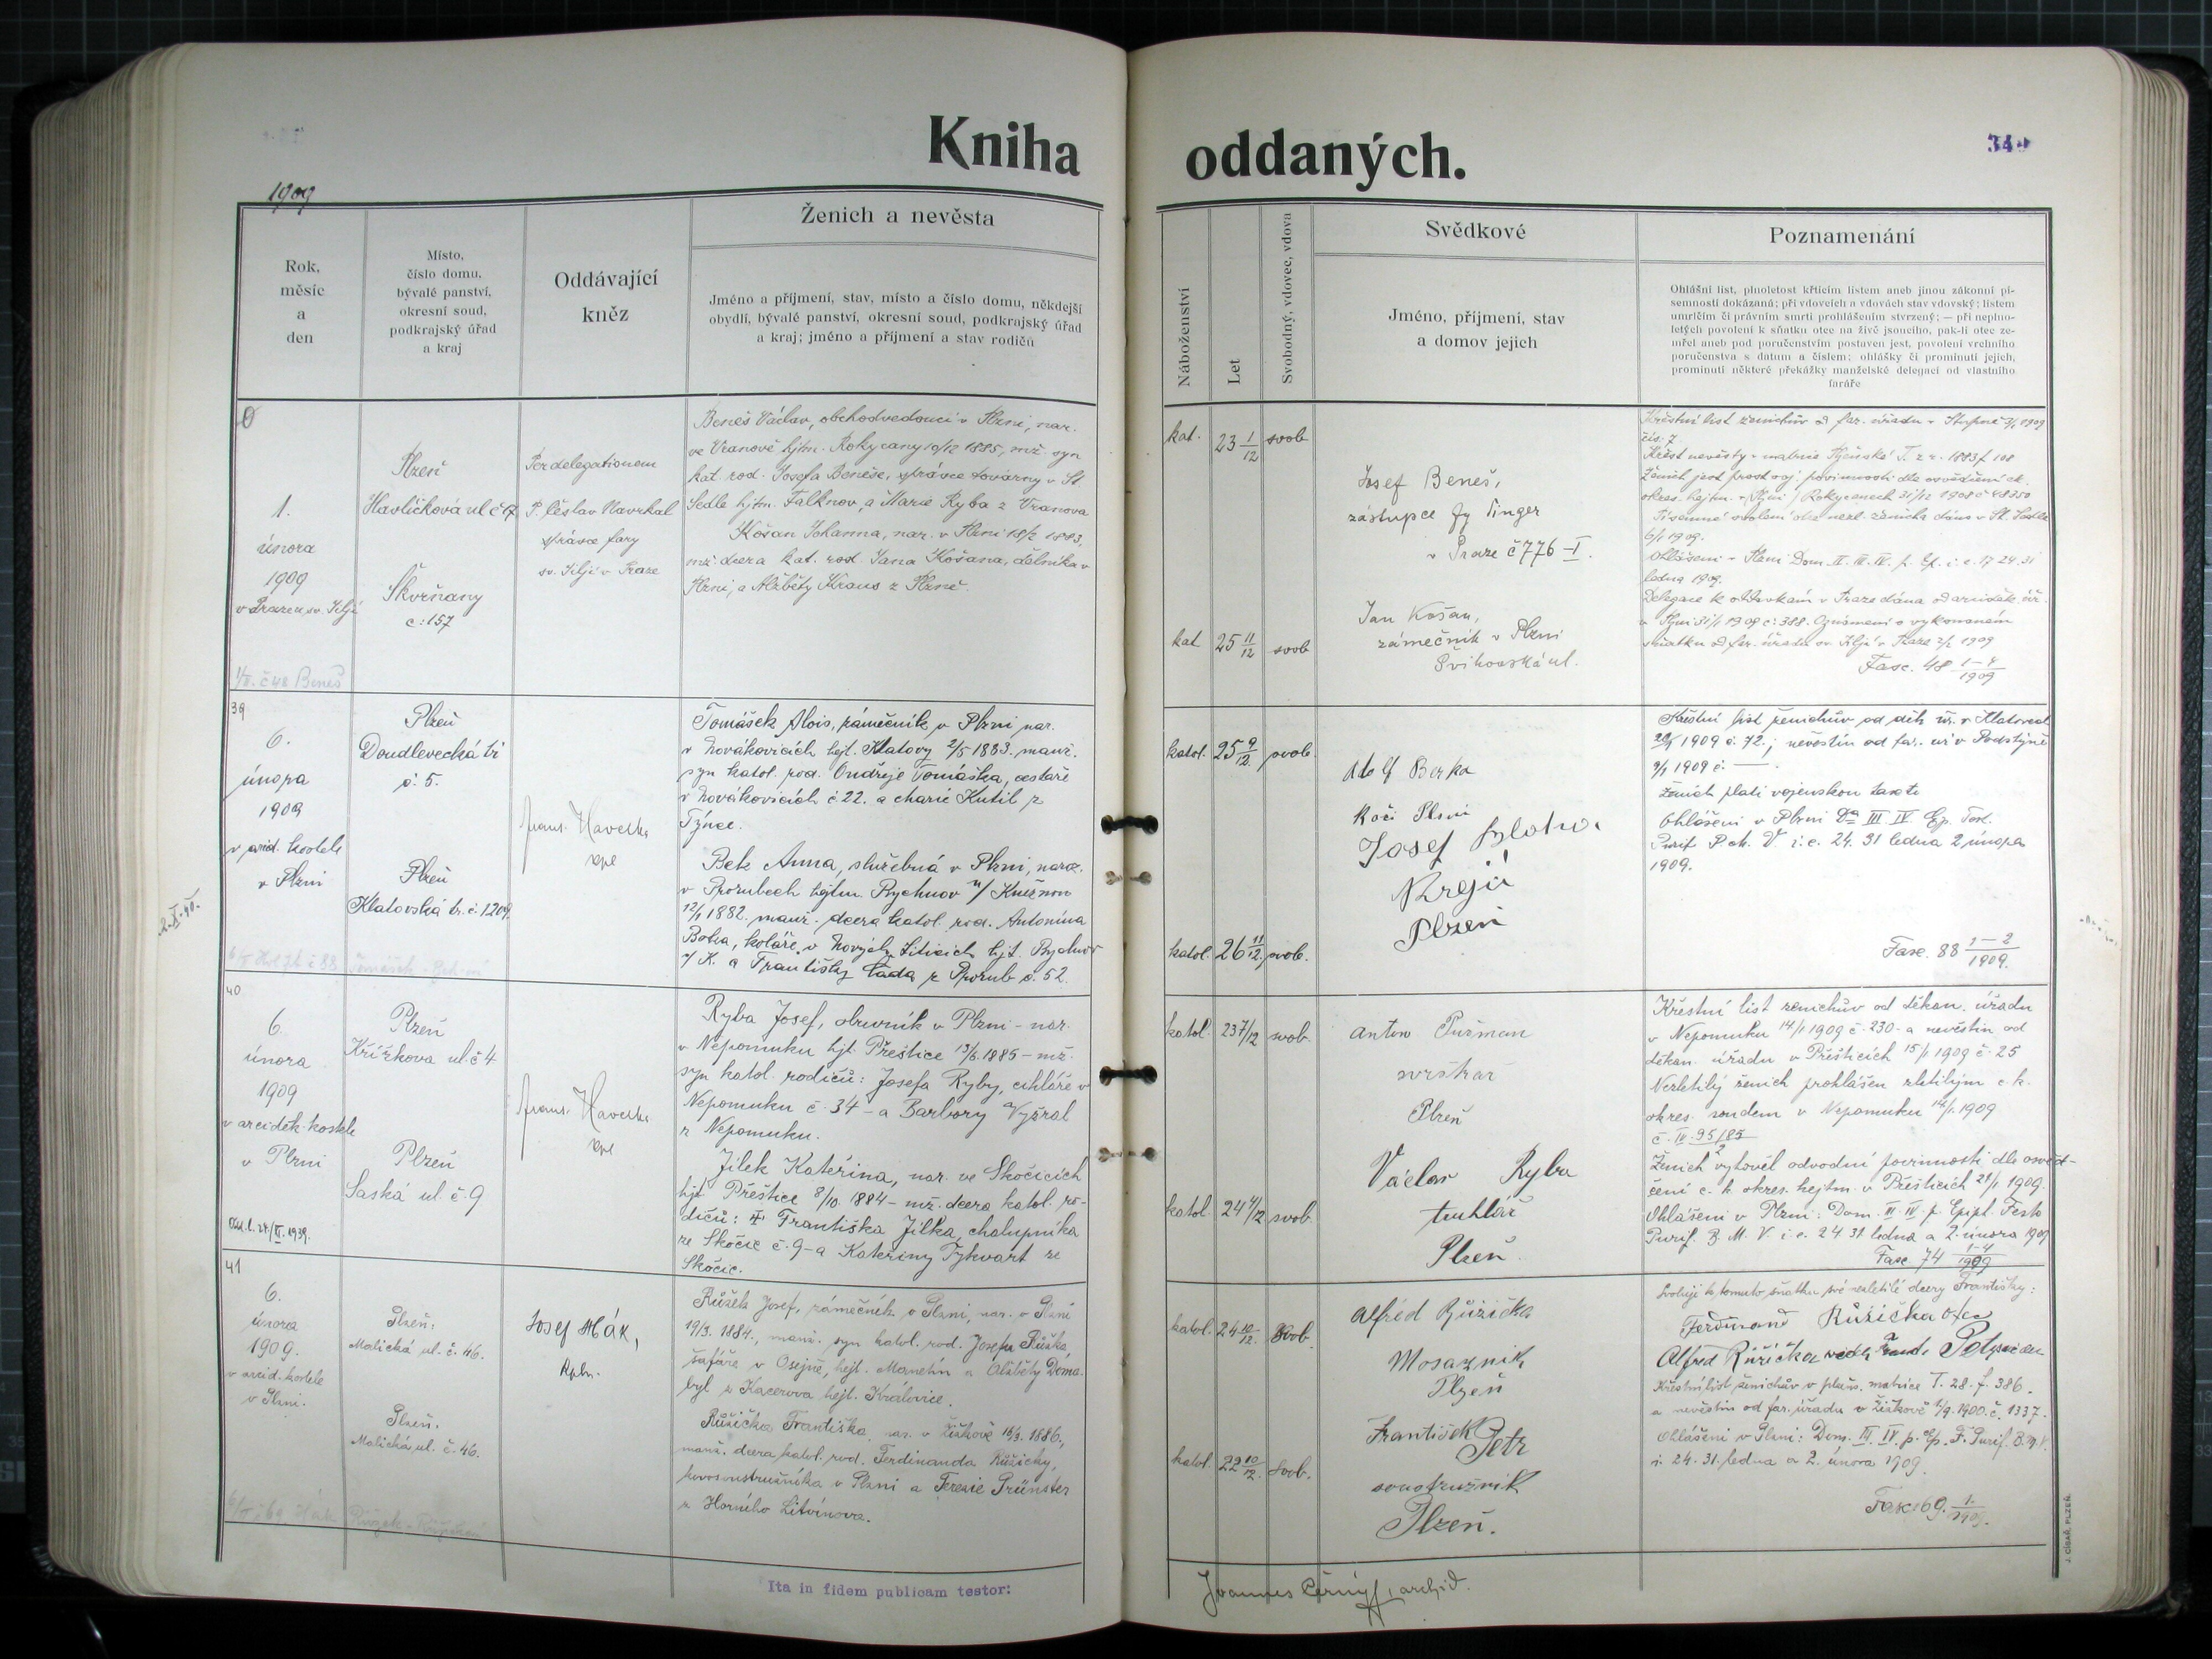 Kniha
oddaných.
34
1909
Rok,
měsíc
a
den
Místo,
číslo domu,
bývalé panství,
okresní soud,
podkrajský úřad
a kraj
Oddávající
kněz
Ženich a nevěsta
Jméno a příjmení, stav, místo a číslo domu, někdejší
obydlí, bývalé panství, okresní soud, podkrajský úřad
a kraj; jméno a příjmení a stav rodičů
Náboženství
Let
Svobodný, vdovec, vdova
Svědkové
Jméno, příjmení, stav
a domov jejich
Poznamenání
Ohlášní list, plnoletost křticím listem aneb jinou zákonní pí-
semností dokázaná; při vdovcích a vdovách stav vdovský; listem
umrlčím či právním smrti prohlášením stvrzený; — při neplno-
letých povolení k sňatku otce na živě jsoucího, pak-li otec ze-
mřel aneb pod poručenstvím postaven jest, povolení vrchního
poručenstva s datum a číslem; ohlášky či prominutí jejich,
prominutí některé překážky manželské delegací od vlastního
faráře
1.
února
1909
v Praze u sv. Jiljí
Plzeň
Havlíčková ul. č.
Škvrňany
č: 157
Per delegationem
P. Česlav Navrkal
správce fary
sv. Jiljí v Praze
Beneš Václav, obchodvedoucí v Plzni, nar.
ve Vranově hjtm. Rokycany 10/12 1885, mž. syn
kat. rod. Josefa Beneše, správce továrny v St.
Sedle hjtm. Falknov, a Marie Ryba z Vranova
Košan Johanna, nar. v Plzni 18/2 1883,
mž. dcera kat. rod. Jana Košana, dělníka v
Plzni, a Alžběty Kraus z Plzně.
kat. 23 1/12 svob
kat 25 11/12 svob
Josef Beneš,
zástupce fy Pinger
v Praze č 776-I.
Jan Košan,
zámečník v Plzni
Švihovská ul.
Křestní list ženichův od far. úřadu v Stupně 1909
čís. 7
Křest nevěsty v matrice Plzeňské T. z r. 1883 f 108
okres. hejtm. v Rokycanech 31/12 1908 č 48350
6/1 1909.
Ohlášeni v Plzni Dom. II. III. IV. p. Ep. i. e. 17 24. 31
ledna 1909.
v Plzni 31/1 1909 č: 388. Oznámení o vykonaném
sňatku od far. úřadu sv. Jiljí v Praze 2/2 1909
Fasc. 48 1-4/1909
39
6.
února
1909
v arcid. kostele
v Plzni
Plzeň
Doudlevecká tř
č. 5.
Plzeň
Klatovská tř. č. 1209.
Frant. Havelka
kpl
Tomášek Alois, zámečník v Plzni nar.
v Novákovicích hejt. Klatovy 2/5 1883. manž.
syn katol. rod. Ondřeje Tomáška, cestáře
v Novákovicích č 22. a Marie Kutil z
Týnce.
Bek Anna, služebná v Plzni, naroz.
v Prorubech hejtm. Rychnov n/ Kněžnou
12/1 1882. manž. dcera katol. rod. Antonína
Beka, koláře v Nových Liticích hjt. Rychnov
n/ K. a Františky Lada z Prorub č. 52.
katol. 25 9/12 svob.
katol. 26 11/12 svob.
Adolf Berka
Kočí Plzni
Josef
Krejčí
Plzeň
Křestní list ženichův od děk. úř. v Klatovech
1909 č. 72.; nevěstin od far. úř v Podstýně
9/1 1909 č. —.
Ženich platí vojenskou taxu
Ohlášeni v Plzni Da III IV Ep. Fest.
Purif. V i. e. 24. 31 ledna 2 února
1909.
Fasc. 88 1-2/1909.
40
6.
února
1909
v arciděk. kostele
v Plzni
Plzeň
Křížkova ul. č 4
Plzeň
Saská ul. č. 9
Frant. Havelka
kpl
Ryba Josef, obuvník v Plzni - nar.
v Nepomuku hjt. Přeštice 13/3 1885 - mž.
syn katol. rodičů: Josefa Ryby, cihláře v
Nepomuku č. 34 - a Barbory Vyšral
z Nepomuku.
Jílek Kateřina, nar. ve Skočicích
hjt Přeštice 8/10 1884 - mž. dcera katol. ro-
dičů: Františka Jílka, chalupníka
ze Skočic č. 9 - a Kateřiny Tykvart ze
Skočic.
katol. 23 7/12 svob.
katol. 24 4/12 svob.
Anton Puřman
svrškař
Plzeň
Václav Ryba
truhlář
Plzeň.
Křestní list ženichův od děkan. úřadu
v Nepomuku 14/1 1909 č. 230 - a nevěstin od
děkan. úřadu v Přešticích 15/1 1909 č. 25
Nezletilý ženich prohlášen zletilým c. k.
okres. soudem v Nepomuku 14/1 1909
č. IV. 95/85
Ženich vyhověl odvodní povinnosti dle osvěd-
čení c. k. okres. hejtm. v Přešticích 21/1 1909.
Ohlášeni v Plzni: Dom. III. IV. p. Epipl. Festo
Purif. B. M. V. i. e. 24 31. ledna a 2. února 1909
Fasc 74 1-4/1909
41
6.
února
1909.
v arcid. kostele
v Plzni.
Plzeň:
Malická ul. č. 46.
Plzeň.
Malická ul. č. 46.
Josef Hák,
kpln.
Růžek Josef, zámečník v Plzni, nar. v Plzni
19/3. 1884., manž. syn katol. rod. Josefa Růžka,
šafáře v Osejně, hejt. Manetín a Alžběty Doma-
byl z Kacerova hejt. Královice.
Růžička Františka, nar. v Žižkově 16/3. 1886.,
manž. dcera katol. rod. Ferdinanda Růžičky,
kovosoustružníka v Plzni a Terezie Prünster
z Horního Litvínova.
katol. 24 10/12. svob.
katol. 22 10/12. svob.
Alfréd Růžička
Mosazník
Plzeň
František Petr
soustružník
Plzeň.
Svoluji k tomuto sňatku své nezletilé dcery Františky:
Ferdinand Růžička otec
Alfred Růžička svědek
Křestní list ženichův v plzeň. matrice T. 28. f. 386.
a nevěstin od far. úřadu v Žižkově 1/9. 1900. č. 1337.
Ohlášeni v Plzni: Dom. III. IV. p. Ep. F. Purif. B. M. V.
i. 24. 31. ledna a 2. února 1909.
Fasc. 69. 1./1909.
Ita in fidem publicam testor:
Joannes Černý, archid.
J. CÍSAŘ, PLZEŇ.